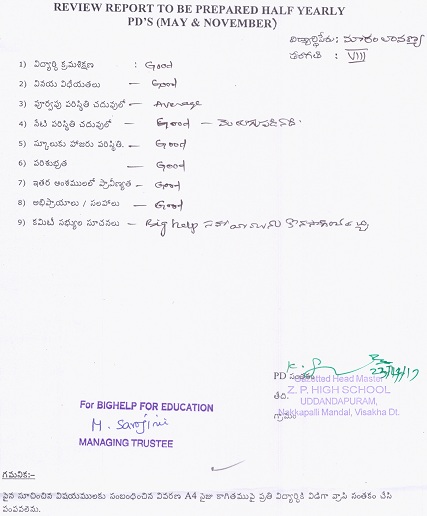 REVIEW REPORT TO BE PREPARED HALF YEARLY
PD'S (MAY & NOVEMBER)
విద్యార్థిపేరు:
తరగతి : VIII
1) విద్యార్థి క్రమశిక్షణ : Good
2) వినయ విధేయతలు — Good
3) పూర్వపు పరిస్థితి చదువులో — Average
4) నేటి పరిస్థితి చదువులో — Good — మెరుగుపడినది.
5) స్కూలుకు హాజరు పరిస్థితి. — Good
6) పరిశుభ్రత — Good
7) ఇతర అంశములలో ప్రావీణ్యత — Good
8) అభిప్రాయాలు / సలహాలు — Good
9) కమిటీ సభ్యుల సూచనలు — Big help
PD సంతకం
Gazetted Head Master
Z. P. HIGH SCHOOL
తేది.
UDDANDAPURAM,
గ్రామం
Nakkapalli Mandal, Visakha Dt.
For BIGHELP FOR EDUCATION
M. Sarojini
MANAGING TRUSTEE
గమనిక:-
పైన సూచించిన విషయములకు సంబంధించిన వివరణ A4 సైజు కాగితముపై ప్రతి విద్యార్థికి విడిగా వ్రాసి సంతకం చేసి
పంపవలెను.